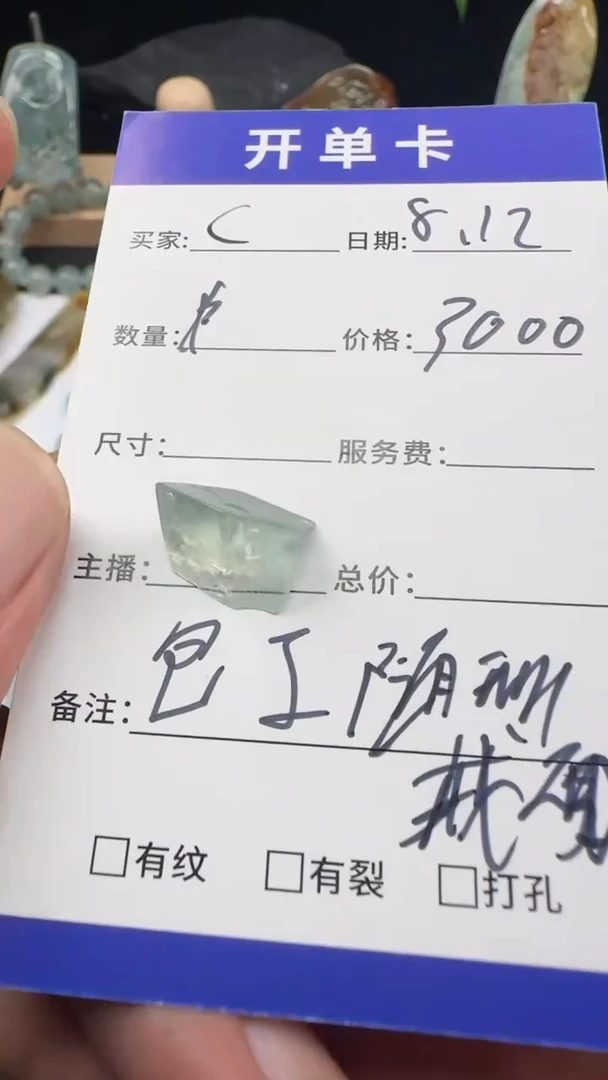 开单卡
买家: C 日期: 8.12
数量: 价格: 3000
尺寸: 服务费:
主播: 总价:
备注: 包工随形
有纹 有裂 打孔